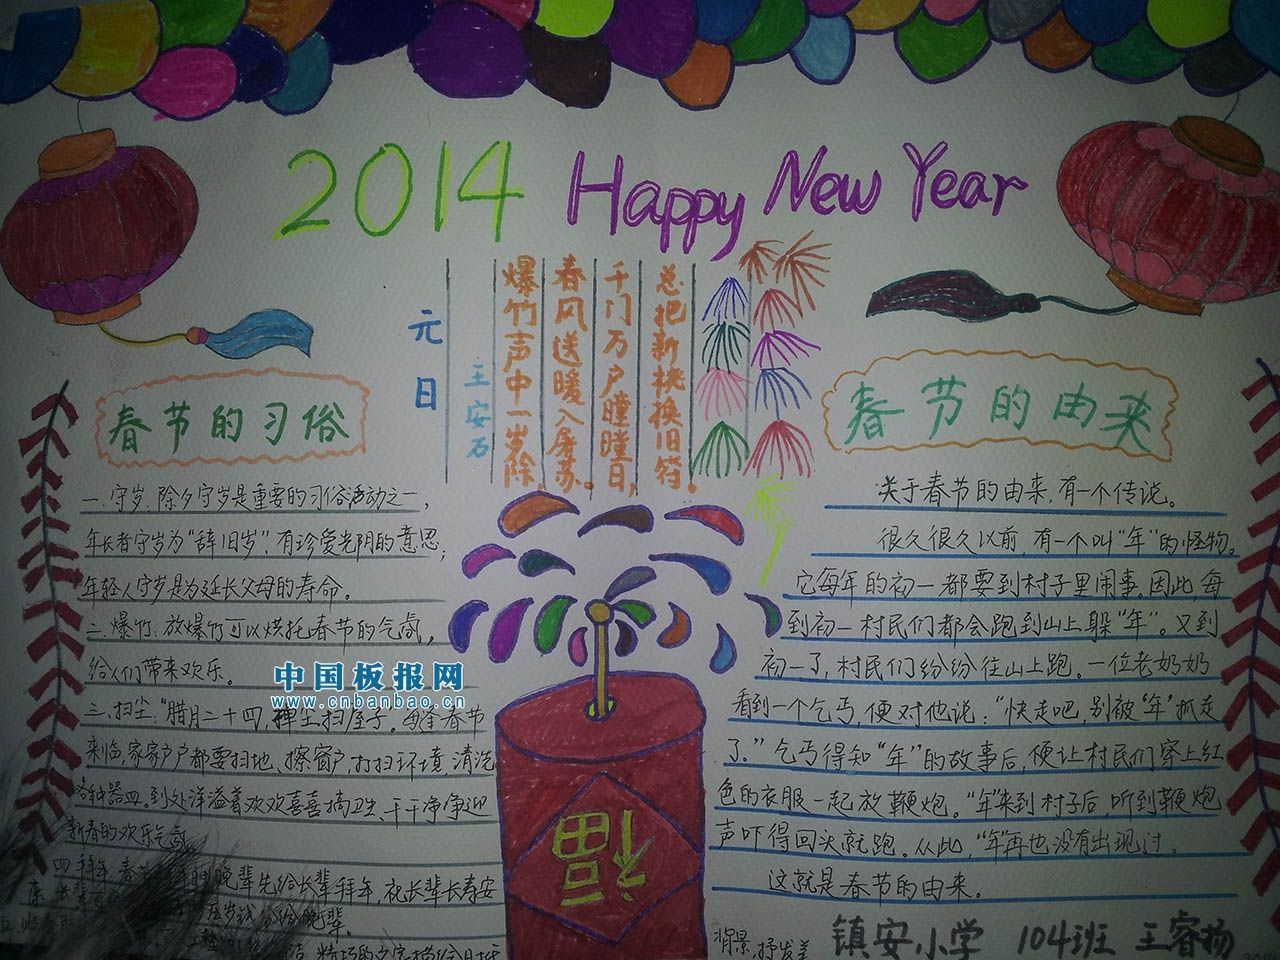 2014 Happy New Year
元日
王安石
爆竹声中一岁除,
春风送暖入屠苏。
千门万户瞳瞳日,
总把新桃换旧符。
春节的习俗
一.守岁.除夕守岁是重要的习俗活动之一,
年长者守岁为“辞旧岁”,有珍爱光阴的意思;
年轻人守岁是为延长父母的寿命。
二.爆竹.放爆竹可以烘托春节的气氛,
给人们带来欢乐。
三.扫尘:“腊月二十四,掸尘扫屋子。每逢春节
来临,家家户户都要扫地、擦窗户,打扫环境,清洗
各种器皿。到处洋溢着欢欢喜喜搞卫生,干干净净迎
新春的欢乐气氛
四.拜年.春节 晚辈先给长辈拜年,祝长辈长寿安
康,长辈 压岁钱分给晚辈。
精巧的文字描绘
中国板报网
www.cnbanbao.cn
福
春节的由来
关于春节的由来,有一个传说。
很久很久以前,有一个叫“年”的怪物。
它每年的初一都要到村子里闹事。因此,每
到初一村民们都会跑到山上躲“年”。又到
初一了,村民们纷纷往山上跑。一位老奶奶
看到一个乞丐,便对他说:“快走吧,别被“年”抓走
了。”乞丐得知“年”的故事后,便让村民们穿上红
色的衣服一起放鞭炮。“年”来到村子后,听到鞭炮
声吓得回头就跑。从此,“年”再也没有出现过。
这就是春节的由来。
背景,抒发美
镇安小学 104班 王睿扬